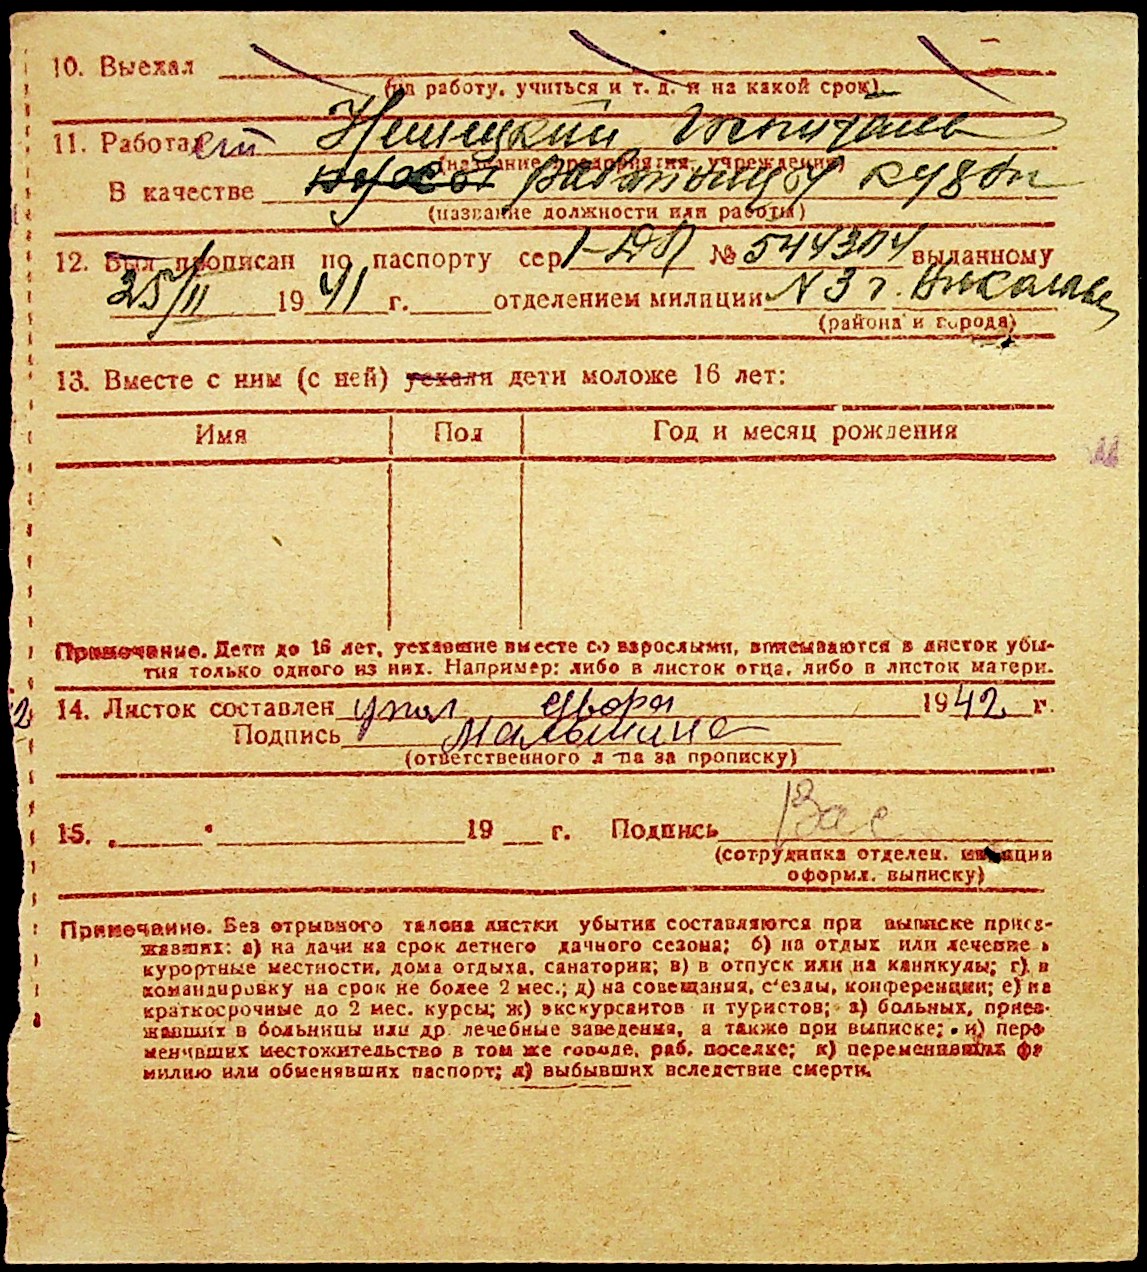 10. Выехал
(на работу, учиться и т. д. и на какой срок)
11. Работает Немецкий Госпиталь
(название предприятия, учреждения)
В качестве работницу кухни
(название должности или работы)
12. Был прописан по паспорту сер. I-ДЛ № 544304 выданному
25/II 1941 г. отделением милиции N3 г. Николаев
(района и города)
13. Вместе с ним (с ней) уехали дети моложе 16 лет:
Имя Пол Год и месяц рождения
Примечание. Дети до 16 лет, уехавшие вместе со взрослыми, вписываются в листок убы-
тия только одного из них. Например: либо в листок отца, либо в листок матери.
14. Листок составлен упол двора 1942 г.
Подпись Малышина
(ответственного л па за прописку)
15. 19 г. Подпись Вас
(сотрудника отделен. милиции
оформл. выписку)
Примечание. Без отрывного талона листки убытия составляются при выписке приез-
жавших: а) на дачи на срок летнего дачного сезона; б) на отдых или лечение в
курортные местности, дома отдыха, санатории; в) в отпуск или на каникулы; г) в
командировку на срок не более 2 мес.; д) на совещания, с'езды, конференции; е) на
краткосрочные до 2 мес. курсы; ж) экскурсантов и туристов; з) больных, приез-
жавших в больницы или др. лечебные заведения, а также при выписке; и) пере
менивших местожительство в том же городе, раб. поселке; к) переменивших фа
милию или обменявших паспорт; л) выбывших вследствие смерти.